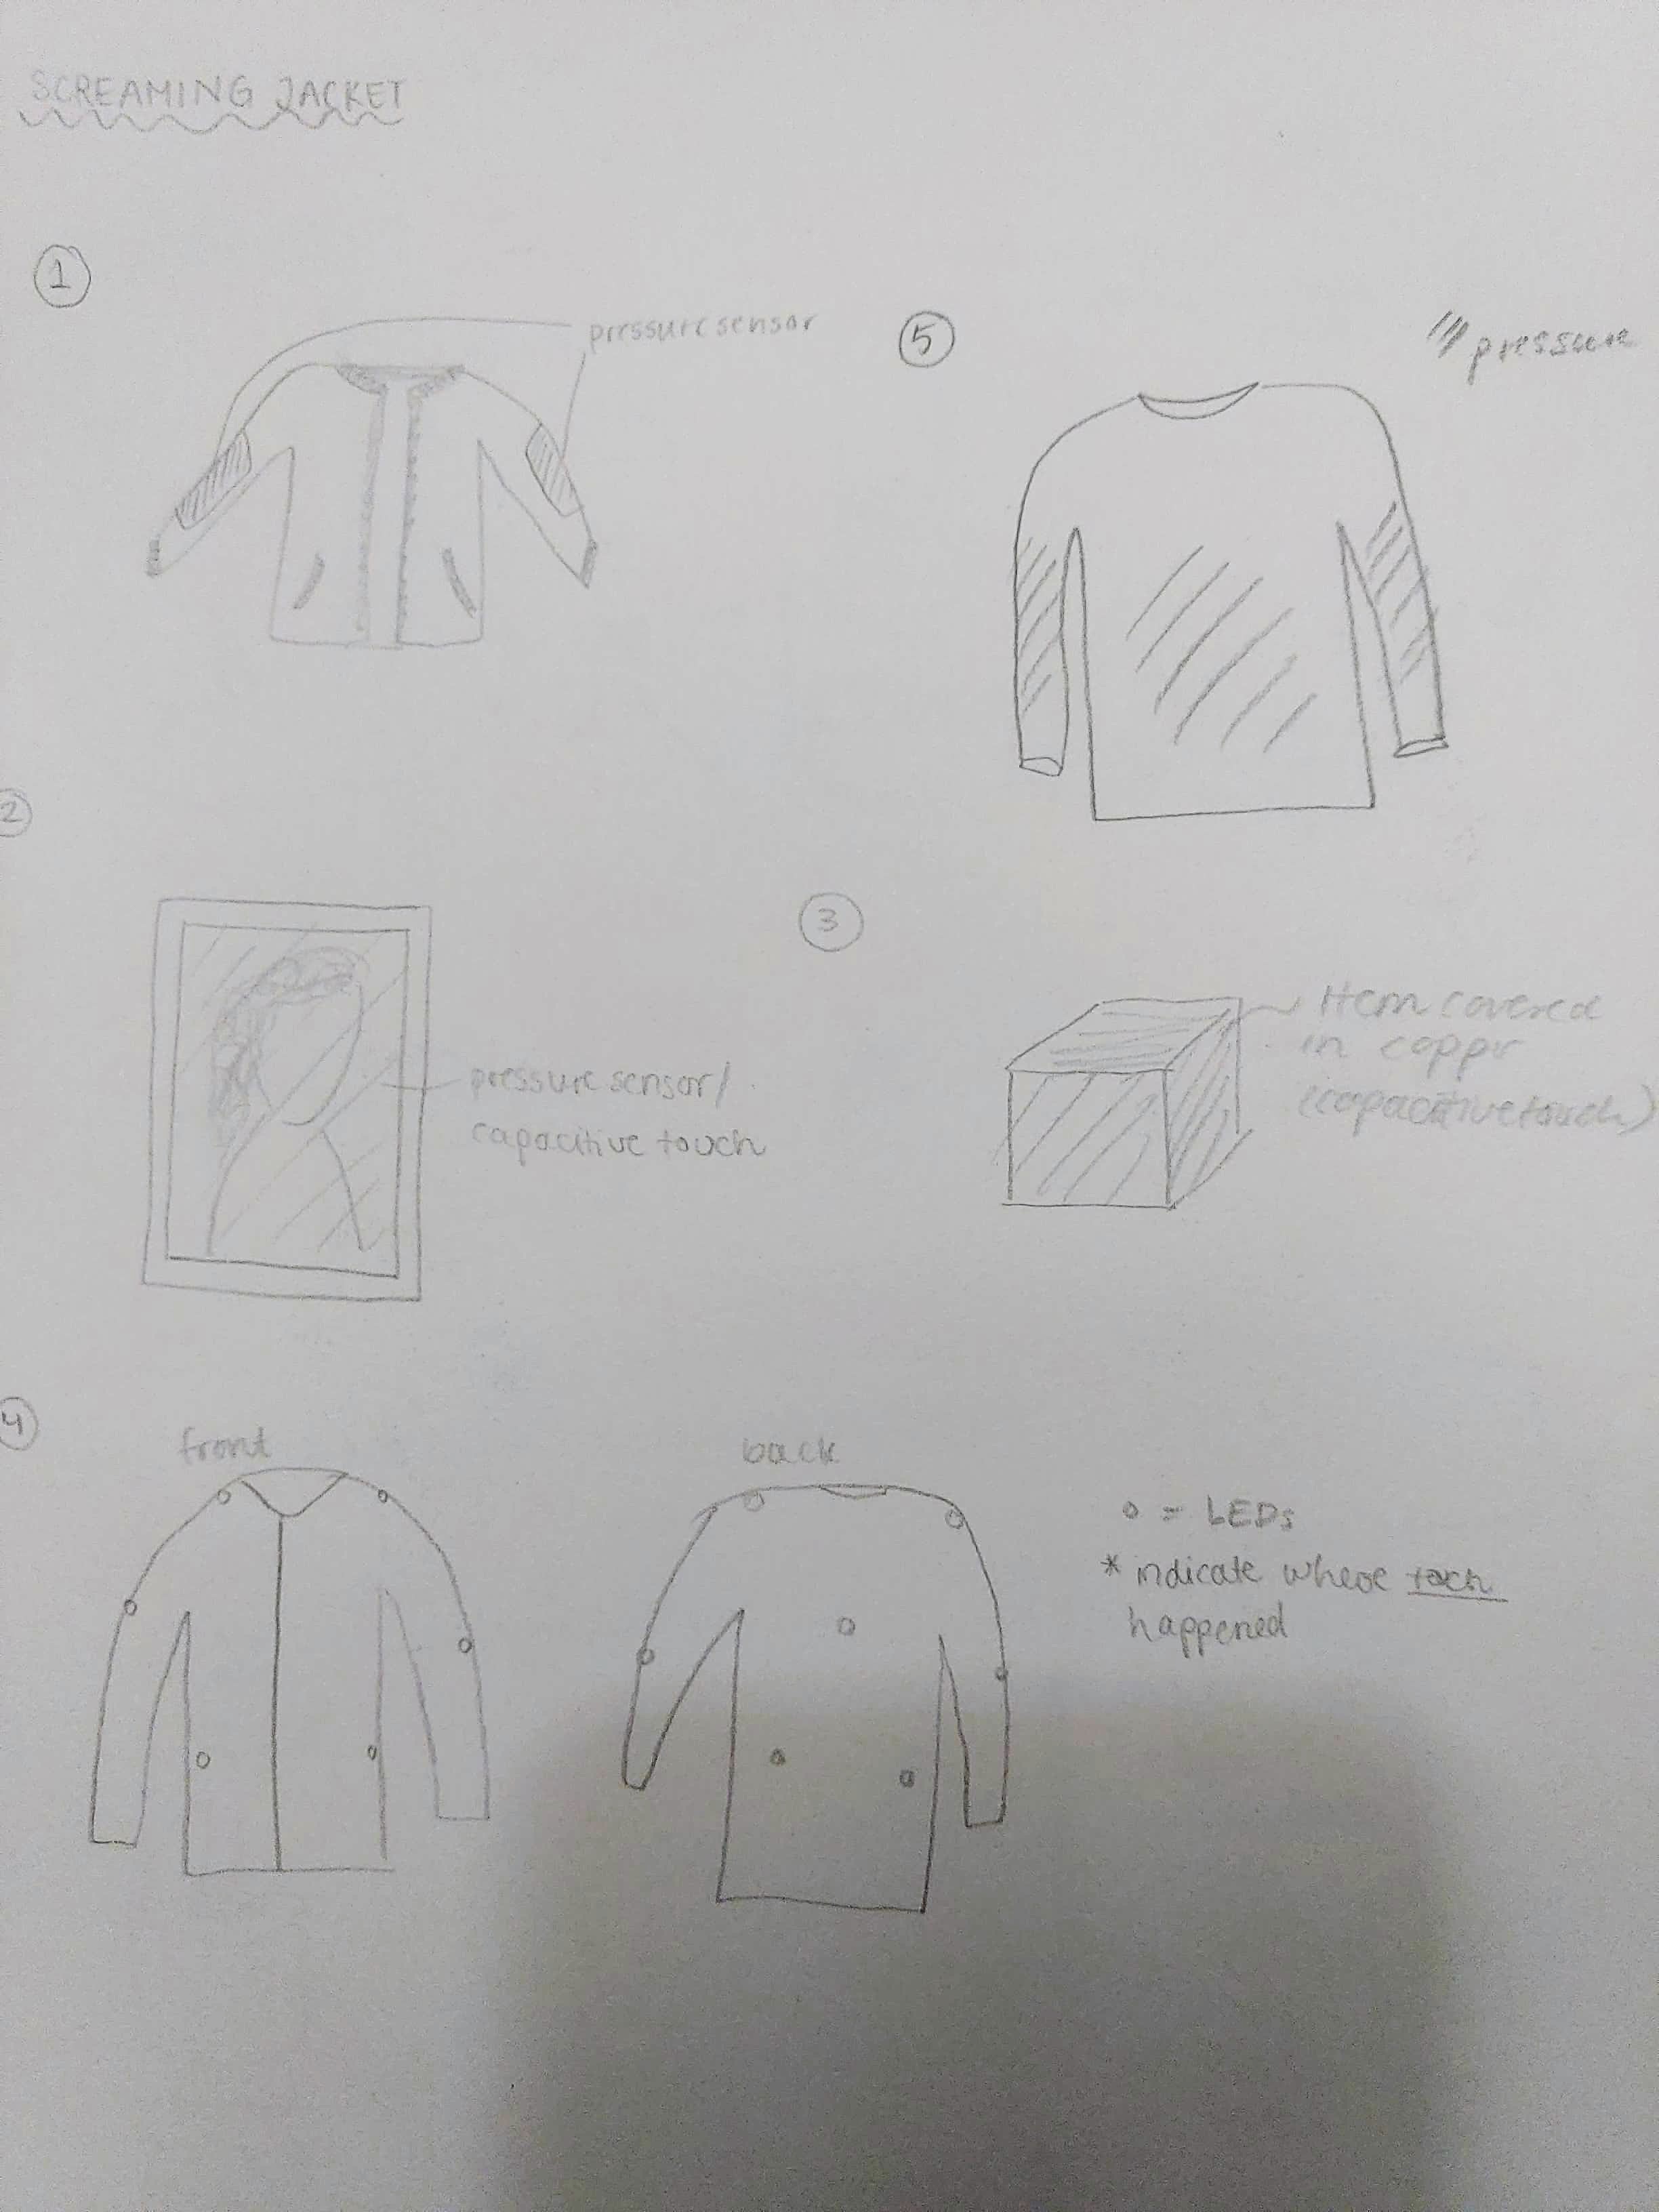 SCREAMING JACKET
1
pressure sensor
5
pressure
2
pressure sensor/
capacitive touch
3
Item covered
in copper
(capacitive touch)
4
front
back
o = LEDs
* indicate where
happened